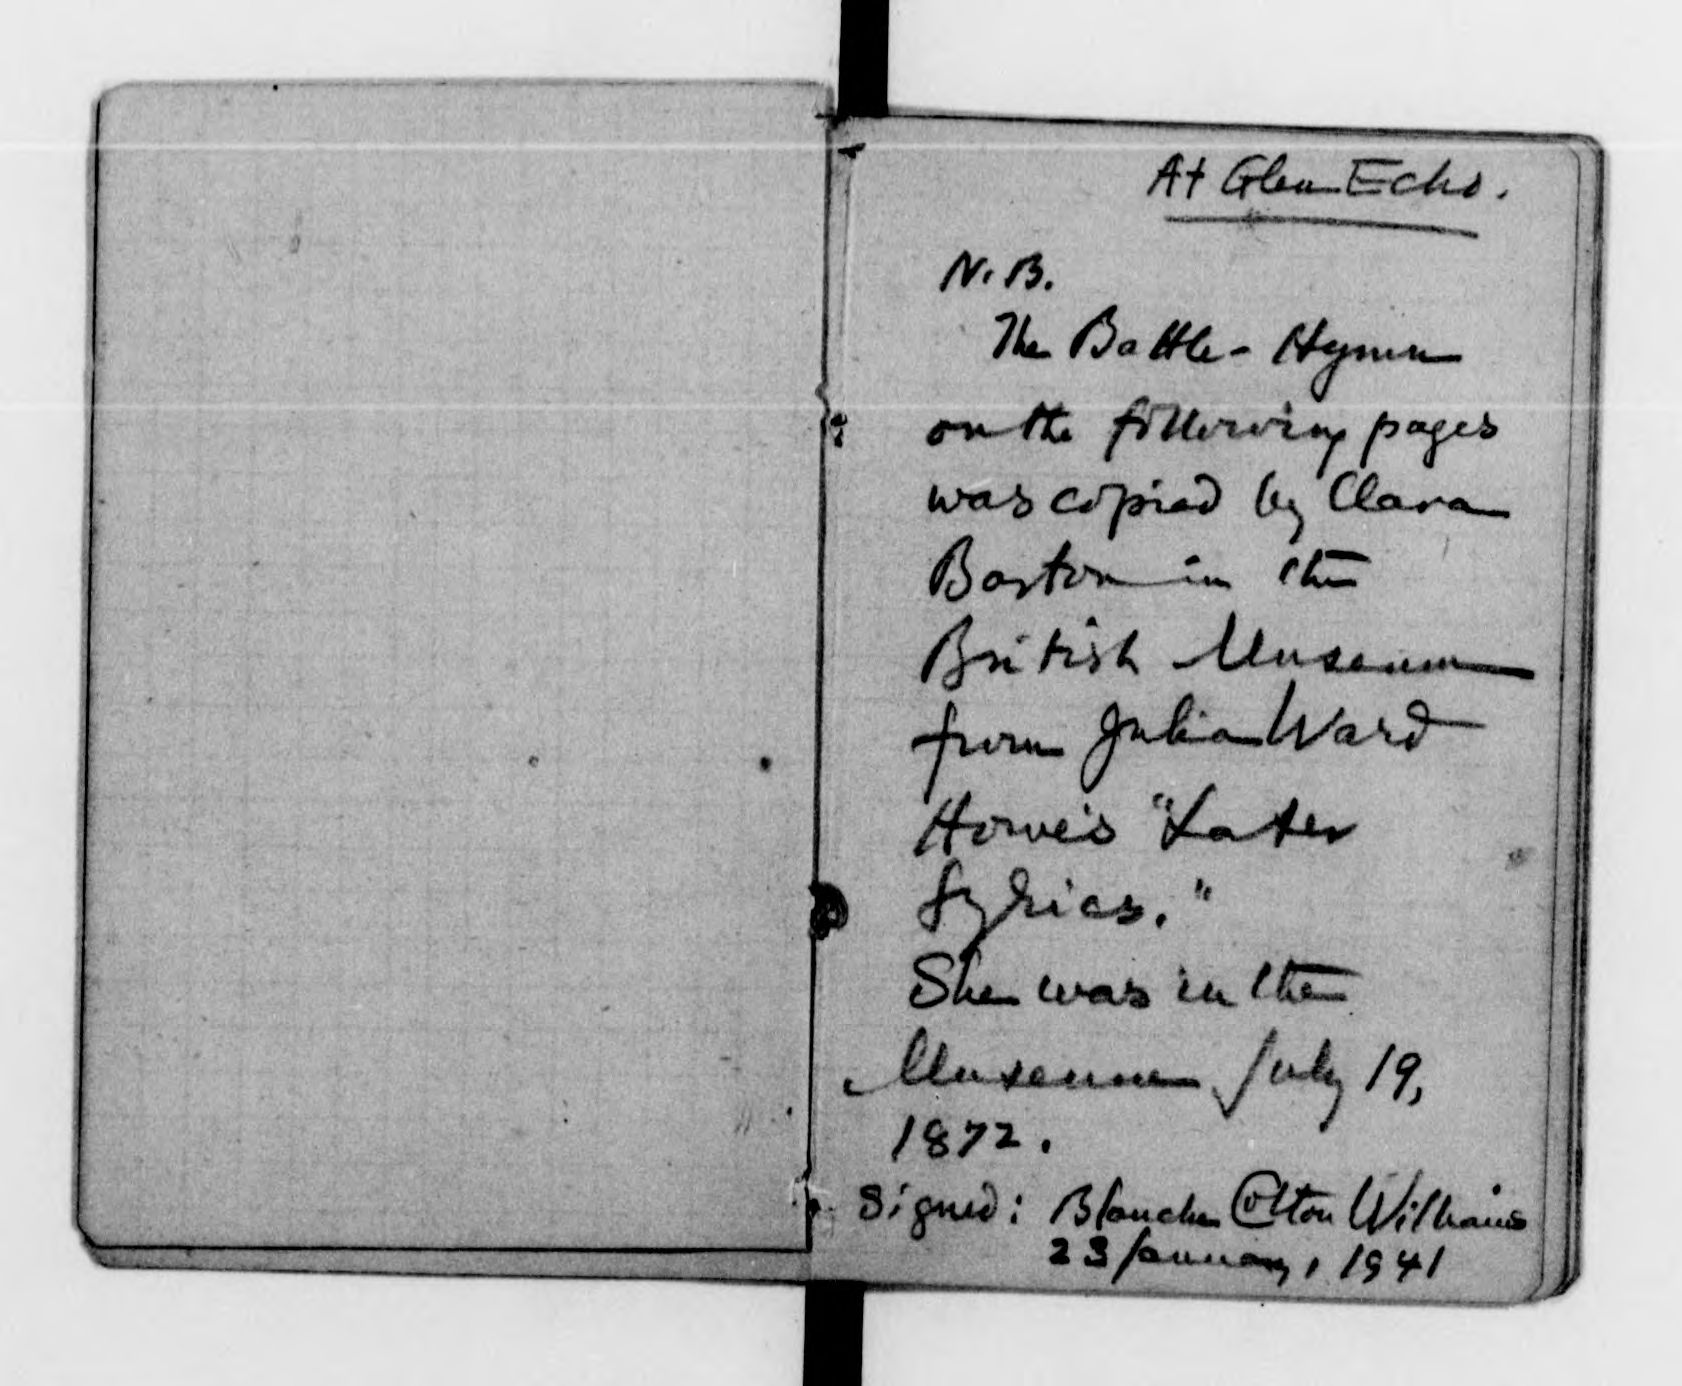 At Glen Echo.
N.B.
The Battle-Hymn
on the following pages
was copied by Clara
Barton in the
British Museum
from Julia Ward
Howe's "Later
Lyrics."
She was in the
Museum July 19,
1872.
Signed: Blanche Colton Williams
23 January, 1941